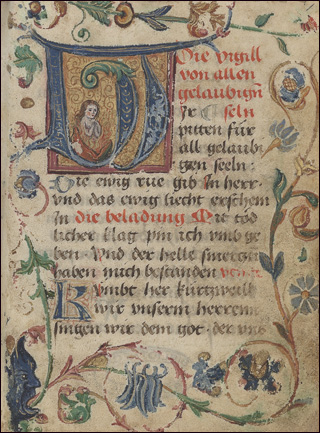 Die vigill
von allen
gelaubigñ
Jr seln
pitten für
all gelaubi
gen seeln :
Die ewig rue gib In herr
vnd das ewig liecht erschein
In die beladung Mit töd
licher klag pin ich vmb ge
ben · Vnd der helle smertzen
haben mich bestanden
Kumbt her kurtzweil
wir vnserm herren
singen wir dem got · der vns